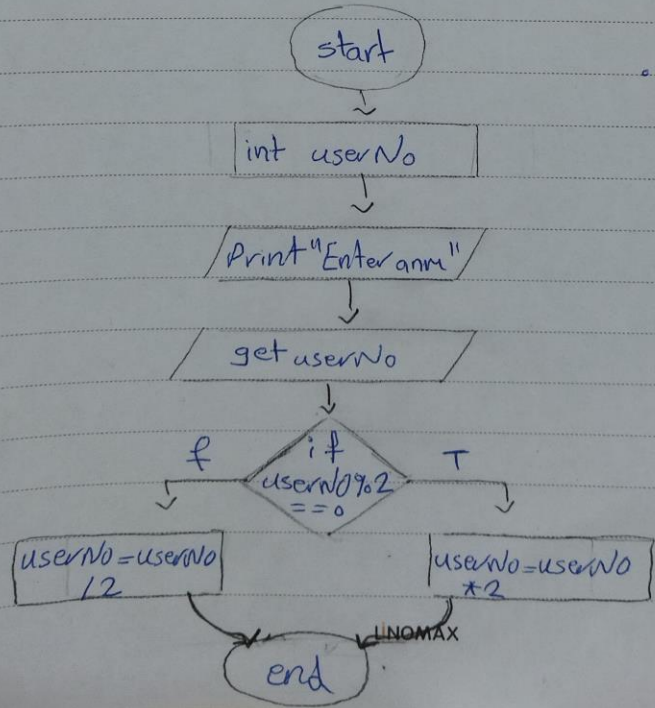 start
int userNo
Print "Enter anm"
get userNo
f
if
T
userNO%2
==0
userNo=userNO
/2
userNo=userNO
*2
LNOMAX
end